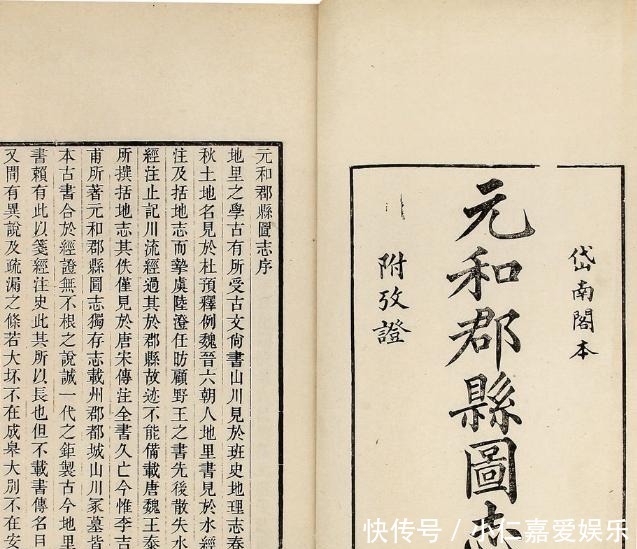 岱南閣本
元和郡縣圖志
附攷證
元和郡縣圖志序
地里之學古有所受古文尙書山川見於班史地理志春
秋土地名見於杜預釋例魏晉六朝人地里書見於水經
注及括地志而摯虞陸澄任昉顧野王之書先後散失水
經注止記川流經過其於郡縣故迹不能備載唐魏王泰
所撰括地志其佚僅見於唐宋傳注全書久亡今惟李吉
甫所著元和郡縣圖志獨存志載州郡都城山川冢墓皆
本古書合於經證無不根之說誠一代之鉅製古今地里
書賴有此以箋經注史此其所以長也但不載書傳名目
又間有異說及疏漏之條若大坏不在成皋大別不在安
快传号/小仁嘉爱娱乐